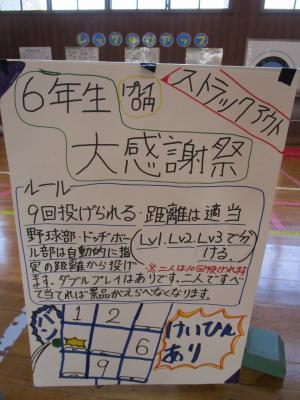 レッツ
アップ
6年生
プロ級
ストラックアウト
大感謝祭
ルール
9回投げられる・距離は適当
野球部・ドッヂボー
ル部は自動的に指
定の距離から投げ
(Lv1.Lv2.Lv3で分
ける。
※二人は10回投げれます
ます。ダブルプレイはありです。二人ですべ
て当てれば景品がえらべなくなります。
バン
1 2
6
9
けいひん
あり